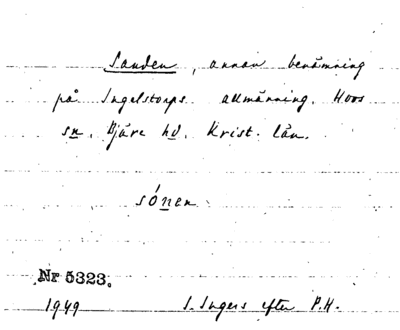 Sanden, annan benämning
på Ingelstorps allmänning. Hoos
sn. Bjäre hd. Krist. län.
sónen
Nr 5323.
1949 S. Ingers efter P.H.